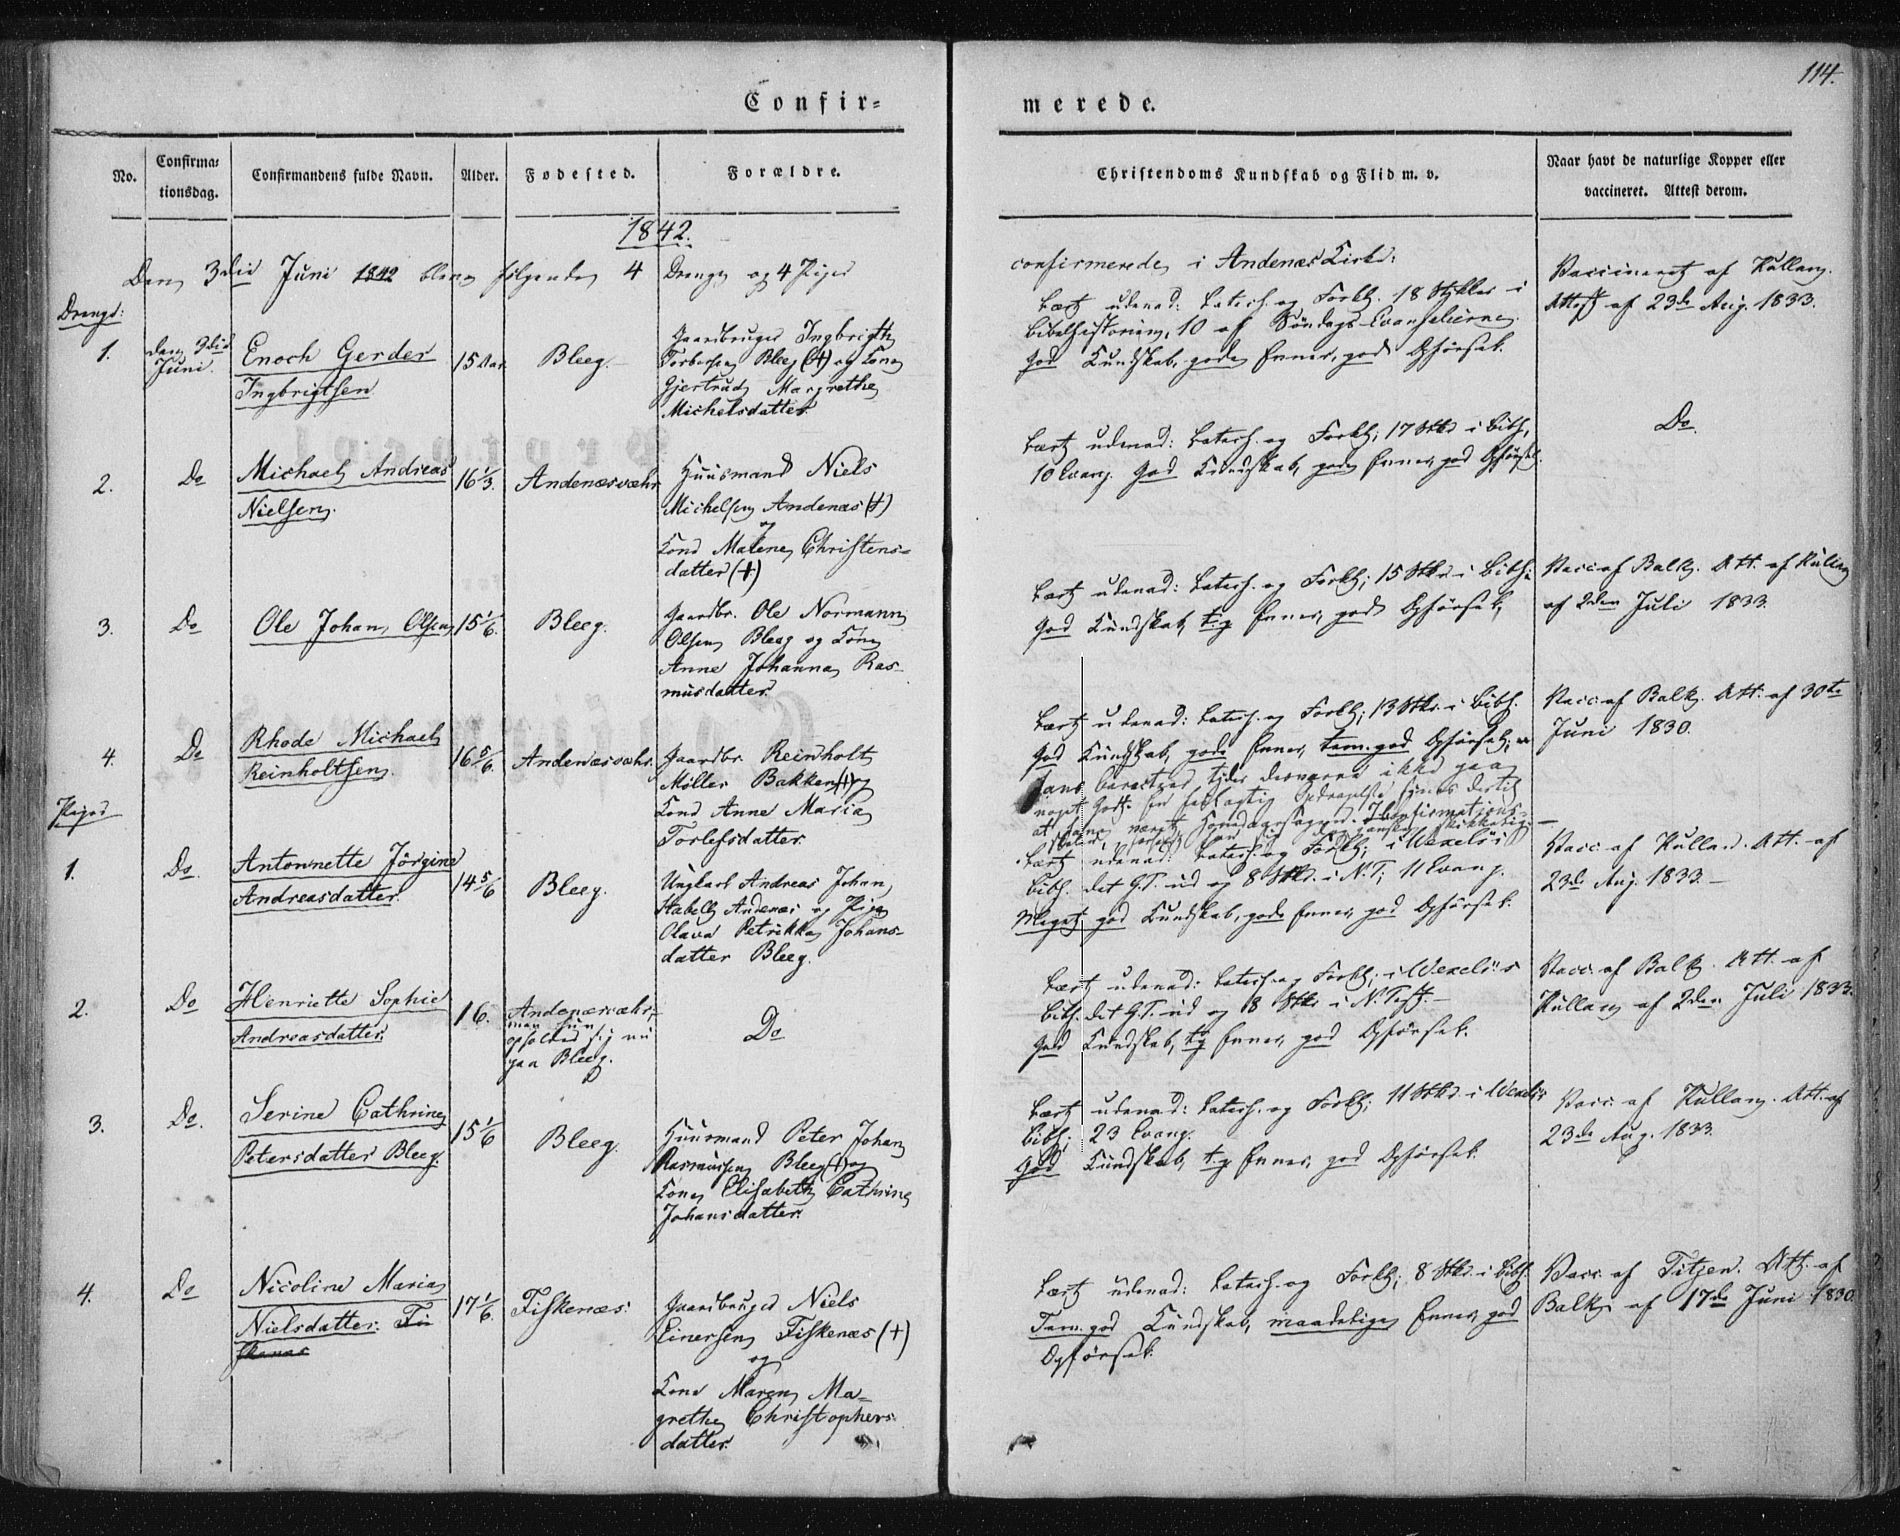 114.
Confir-
merede.
No.
Confirma-
tionsdag.
Confirmandens fulde Navn.
Alder.
Fødested.
Forældre.
Christendoms Kundskab og Flid m. v.
Naar havt de naturlige Kopper eller
vaccineret. Attest derom.
1842.
Den 3die Juni 1842 bleve følgende 4 Drenge og 4 Piger
confirmerede i Andenæs Kirke:
Drenge:
1.
Juni.
Enoch Gerder
Ingbrigtsen
15 Aar
Bleeg.
Gaardbruger Ingbrigth
Torbersen Bleeg (+) og Kone
Gjertrud Margrethe
Michelsdatter
Lært udenad: Catech. og Forkl. 18 Stykker i
Bibelhistorien, 10 af Søndags-Evangelierne.
God Kundskab, gode Evner, god Opførsel.
Vaccineret af Kullan.
Attest af 23de Aug. 1833.
2.
Do
Michael Andreas
Nielsen.
16 1/3.
Andenæsvæhr
Huusmand Niels
Michelsen Andenæs (+)
og
Kone Malene Christens-
datter (+)
Lært udenad: Catech. og Forkl; 17 Stkr i Bibh,
10 Evang. God Kundskab, gode Evner, god Opførsel.
Do.
3.
Do
Ole Johan Olsen
15 1/6.
Bleeg.
Gaardbr. Ole Normann
Olsen Bleeg og Kone
Anne Johanna Ras-
musdatter
Lært udenad: Catech. og Forkl; 15 Stkr. i Bibh.
God Kundskab, t. g. Evner, god Opførsel,
Vacc. af Balk. Att. af Kullan
af 2den Juli 1833.
4.
Do
Rhode Michael
Reinholtsen.
16 5/6.
Andenæsvæhr.
Gaardbr. Reinholt
Møller Bakken (+) og
Kone Anne Maria
Torlefsdatter
Lært udenad: Catech. og Forkl; 13 Stkr. i Bibh.
God Kundskab, gode Evner, tem. god Opførsel,
hans Caracteer tyder desværre ikke paa
noget Godt.
Vacc. af Balk. Att. af 30te
Juni 1830.
Piger
1.
Do.
Antonnette Jørgine
Andreasdatter
14 5/6
Bleeg.
Ungkarl Andreas Johan
Stabell Andenæs og Pige
Olava Petrikka Johans-
datter Bleeg.
Lært udenad: Catech. og Forkl; i Wexels's
Bibh. det G.T. ud og 8 Stkr. i N.T; 11 Evang.
Meget god Kundskab, gode Evner, god Opførsel.
Vacc. af Kullan. Att. af
23de Aug. 1833.
2.
Do
Henriette Sophie
Andreasdatter.
16.
Andenæsvæhr,
men hun
opholder sig nu
paa Bleeg.
Do
Lært udenad: Catech. og Forkl; i Wexels's
Bibh. det G.T. ud og 18 Stkr i N. Test.
God Kundskab, tg Evner, god Opførsel.
Vacc. af Balk. Att. af
Kullan af 2den Juli 1833.
3.
Do.
Serine Cathrine
Petersdatter Bleeg.
15 1/6
Bleeg.
Huusmand Peter Johan
Rasmussen Bleeg (+) og
Kone Elisabeth Cathrine
Johansdatter.
Lært udenad: Catech. og Forkl; 11 Stkr. i Wexels's
Bibh; 23 Evang.
God Kundskab, t. g. Evner, god Opførsel.
Vacc. af Kullan. Att. af
23de Aug. 1833.
4.
Do
Nicoline Maria
Nielsdatter. Fi
skenæs
17 1/6.
Fiskenæs.
Gaardbruger Niels
Einersen Fiskenæs (+)
og
Kone Maren Ma-
grethe Christophers-
datter.
Lært udenad: Catech. og Forkl; 8 Stkr. i Bibh.
Tem. god Kundskab, maadelige Evner, god
Opførsel.
Vacc. af Titzen. Att. af
Balk af 17de Juni 1830.